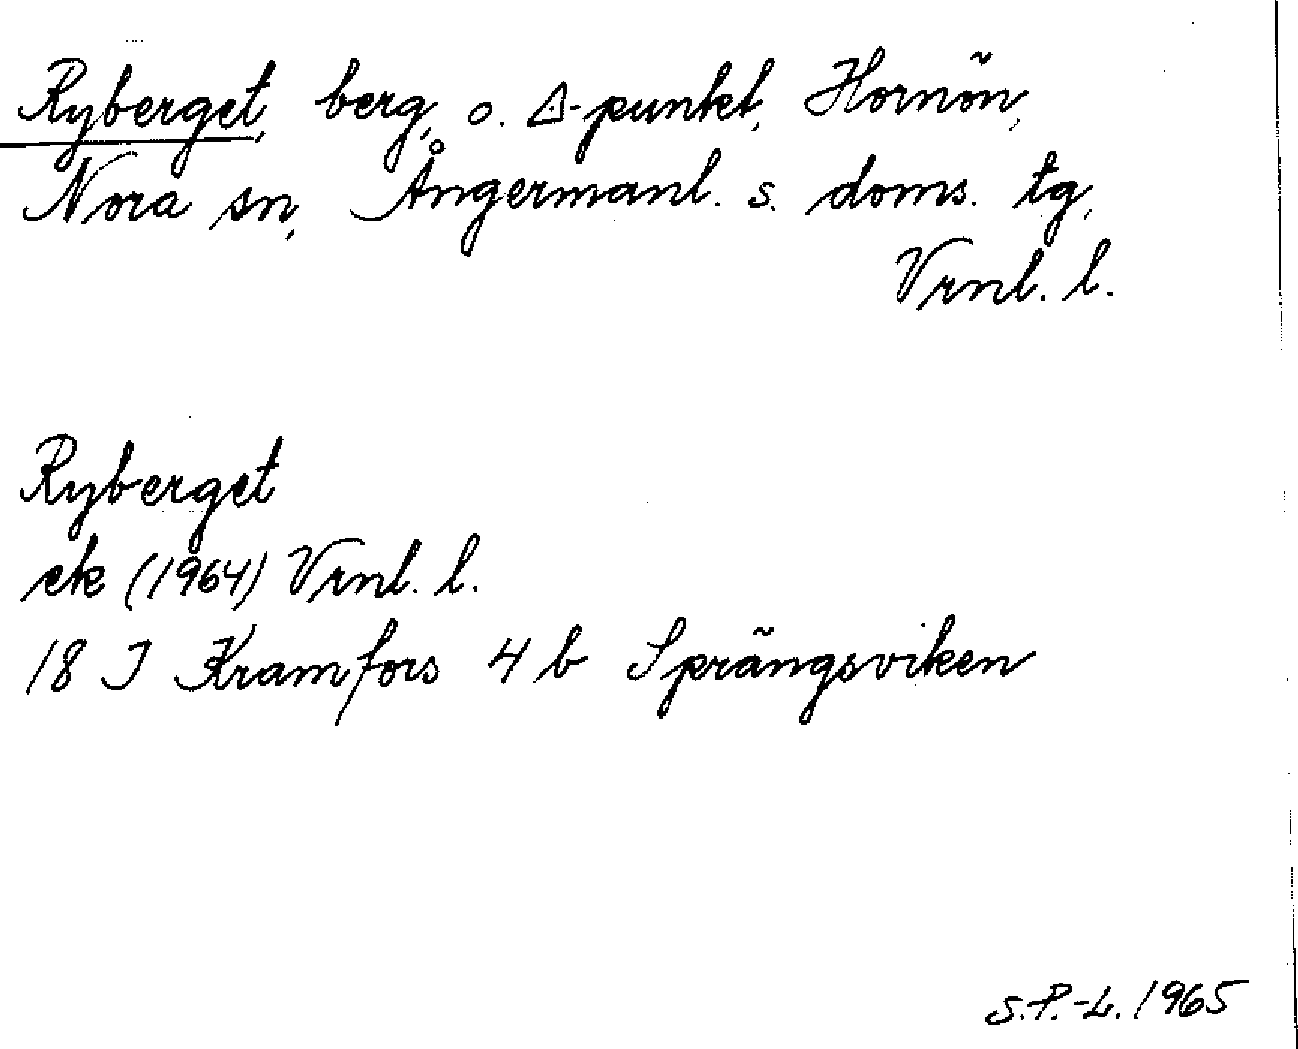 Ryberget, berg, o. △-punkt, Hornön,
Nora sn, Ångermanl. s. doms. tg,
Vrnl. l.
Ryberget
ek (1964) Vrnl. l.
18 I Kramfors 4 b Sprängsviken
S.P.-L. 1965